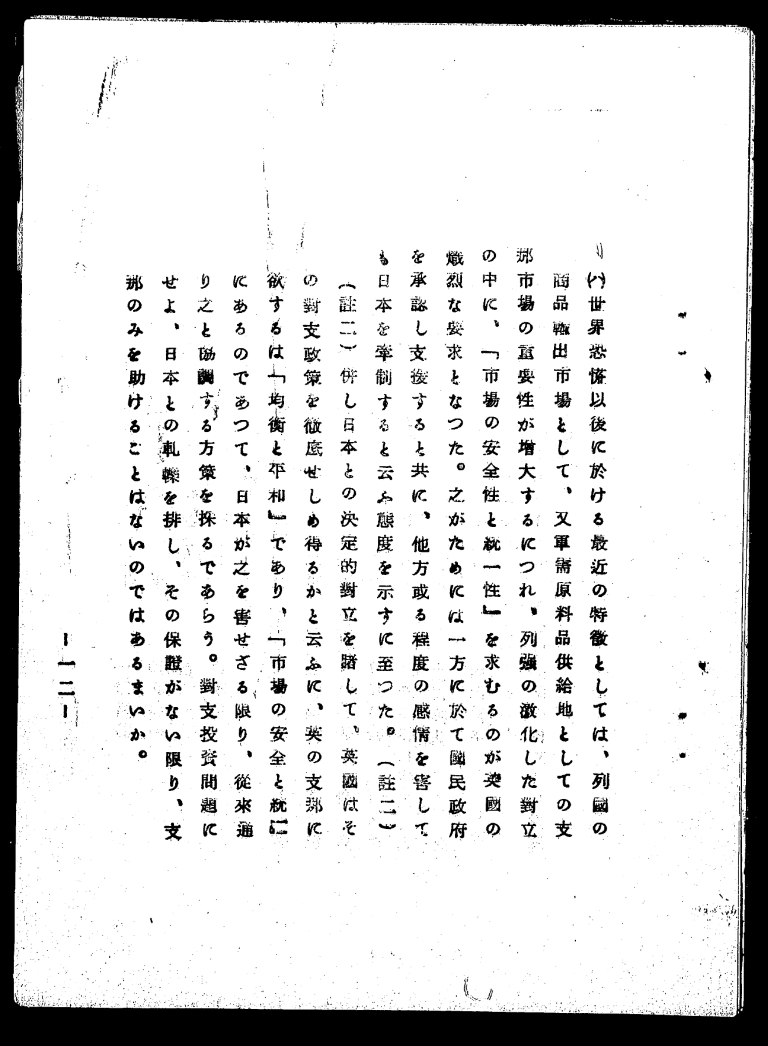 (ハ)世界恐慌以後に於ける最近の特徴としては、列國の
商品輸出市場として、又軍需原料品供給地としての支
那市場の重要性が增大するにつれ、列強の激化した對立
の中に、「市場の安全性と統一性」を求むるのが英國の
熾烈な要求となつた。之がためには一方に於て國民政府
を承認し支援すると共に、他方或る程度の感情を害して
も日本を牽制すると云ふ態度を示すに至つた。(註二)
(註二)併し日本との決定的對立を賭して、英國はそ
の對支政策を徹底せしめ得るかと云ふに、英の支那に
欲するは「均衡と平和」であり、「市場の安全と統一」に
にあるのであつて、日本が之を害せざる限り、從來通
り之と協調する方策を採るであらう。對支投資問題に
せよ、日本との軋轢を排し、その保證がない限り、支
那のみを助けることはないのではあるまいか。
ー一二ー